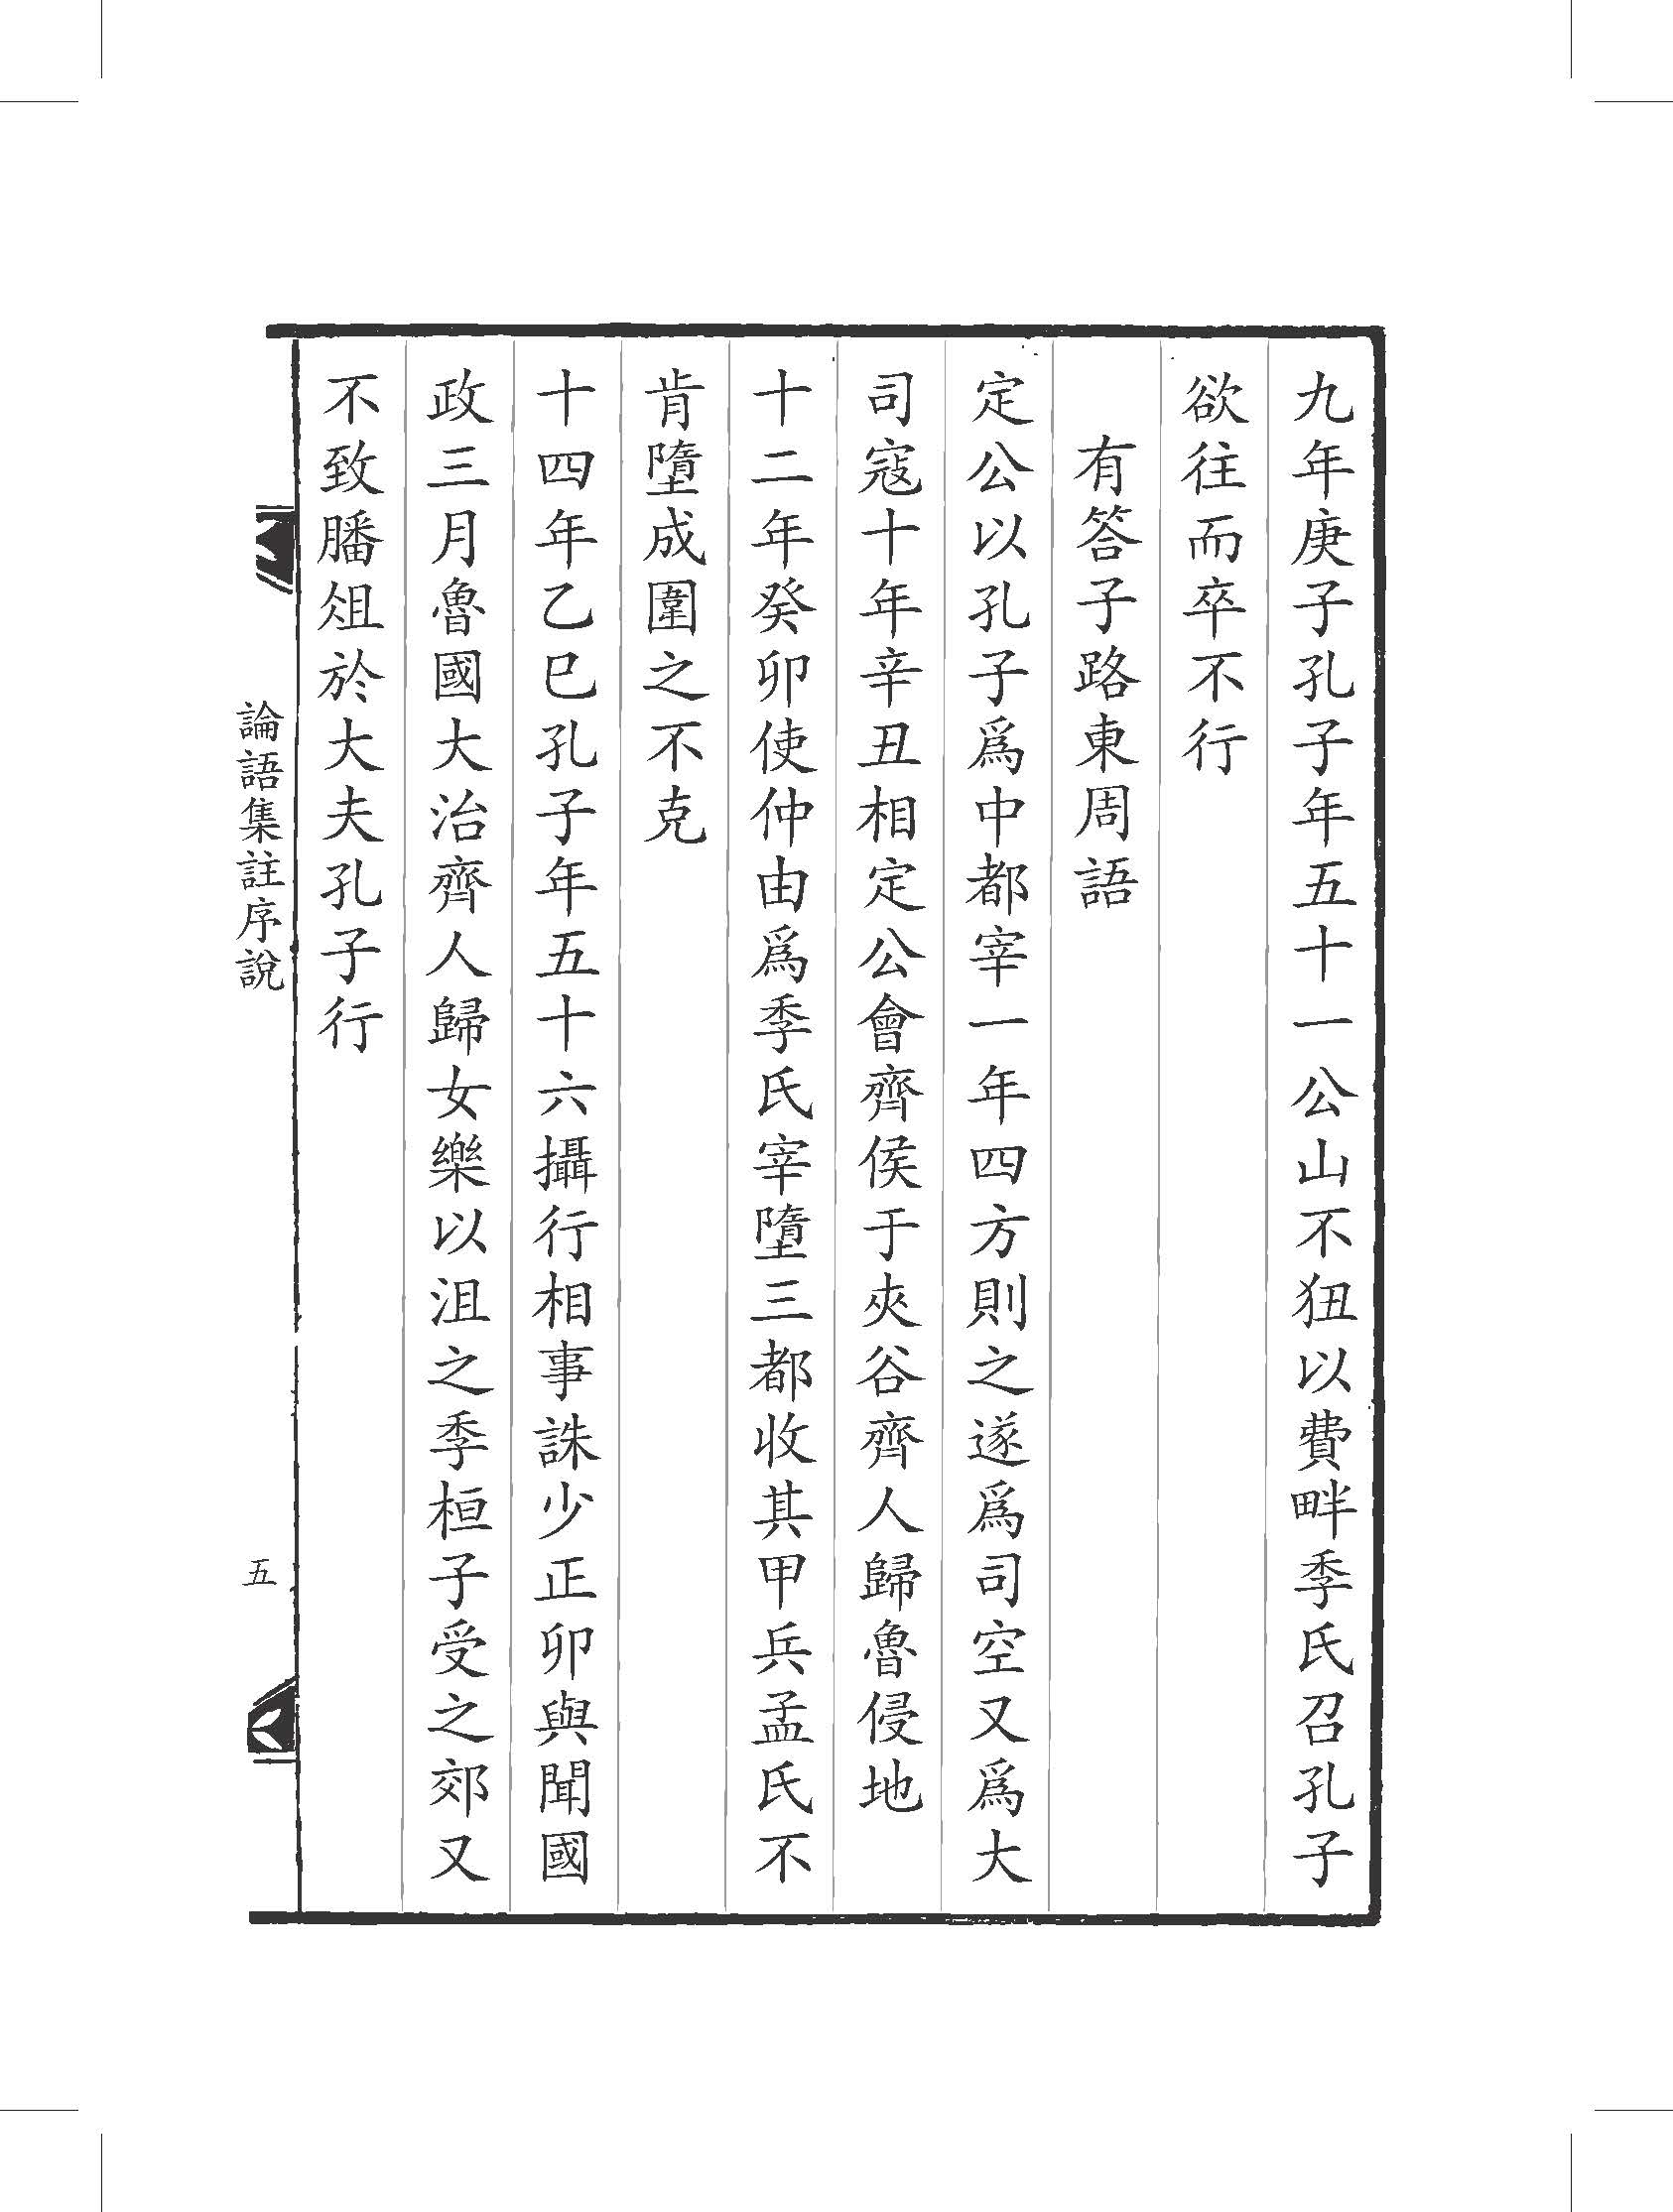 九年庚子孔子年五十一公山不狃以費畔季氏召孔子
欲往而卒不行
有答子路東周語
定公以孔子爲中都宰一年四方則之遂爲司空又爲大
司寇十年辛丑相定公會齊侯于夾谷齊人歸魯侵地
十二年癸卯使仲由爲季氏宰墮三都收其甲兵孟氏不
肯墮成圍之不克
十四年乙巳孔子年五十六攝行相事誅少正卯與聞國
政三月魯國大治齊人歸女樂以沮之季桓子受之郊又
不致膰俎於大夫孔子行
論語集註序說
五